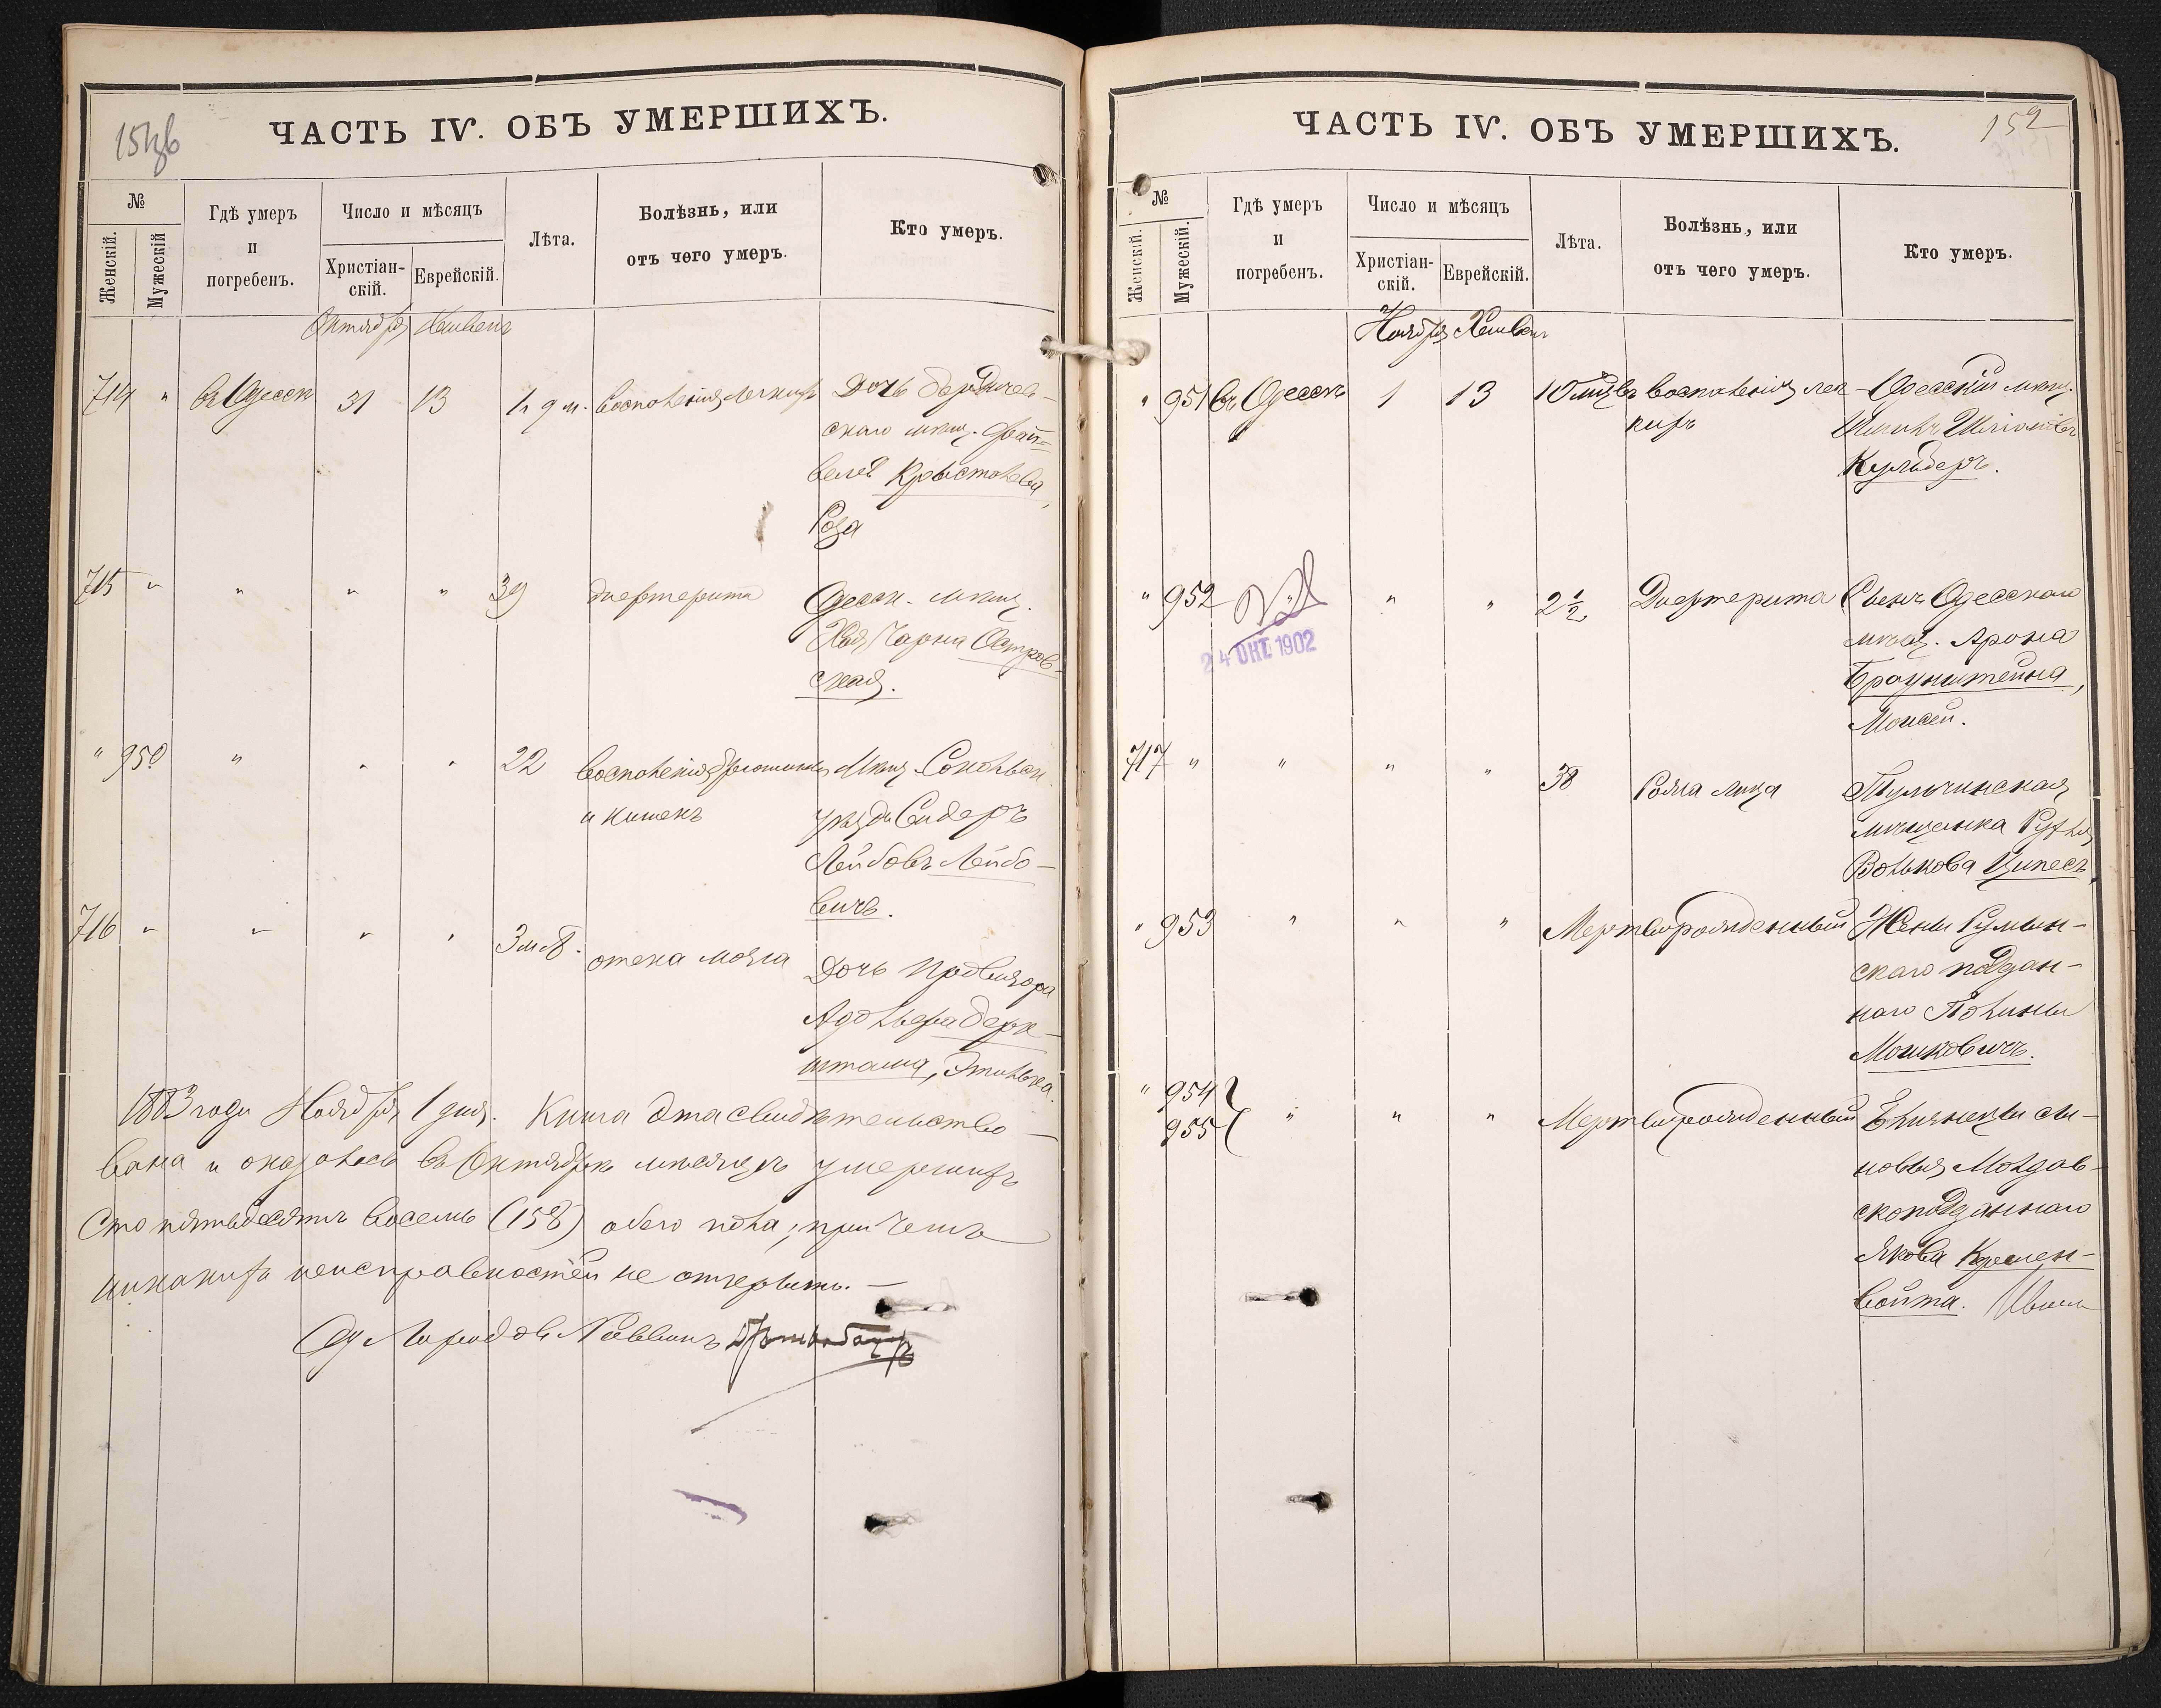 151об
ЧАСТЬ IV. ОБЪ УМЕРШИХЪ.
№
Женскій.
Мужескій
Гдѣ умеръ
и
погребенъ.
Число и мѣсяцъ
Христіан-
скій.
Еврейскій.
Лѣта.
Болѣзнь, или
отъ чего умеръ.
Кто умеръ.
Октября Хешвонъ
714 " въ Одессѣ 31 13 1 г. 9 м. воспаленія легкихъ Дочь Бердичев-
скаго мѣщ. Фай-
веля Кревстолева,
Роза
715 " " " " 39 дифтерита Одесск. мѣщ.
Хая Чарна Остров-
ская.
" 950 " " " 22 воспаленія брюшины Мѣщ. Сокольск.
и кишекъ уѣзда Сидеръ
Лейбовъ Лейбо-
вичъ.
716 " " " " 3 м. отека мозга Дочь Провизора
Адольфа Берн-
штама,
1883 года Ноября 1 дня. Книга эта свидѣтельство-
вана и оказалось въ Октябрѣ мѣсяцѣ умершихъ
Сто пятьдесятъ восемь (158) обего пола, при чемъ
никакихъ неисправностей не открыто.
Од. Городов. Раввинъ
ЧАСТЬ IV. ОБЪ УМЕРШИХЪ.
152
№
Женскій.
Мужескій.
Гдѣ умеръ
и
погребенъ.
Число и мѣсяцъ
Христіан-
скій.
Еврейскій.
Лѣта.
Болѣзнь, или
отъ чего умеръ.
Кто умеръ.
Ноября Хешвонъ
" 951 въ Одессѣ 1 13 10 мцвъ воспаленія лег- Одесскій мѣщ.
кихъ
Кульберъ.
" 952 " " 2 1/2 Дифтерита Сынъ Одесскаго
24 ОКТ 1902
мѣщ. Арона
Браунштейна,
Моисей.
717 " " " " 38 Рожа лица Тульчинская
мѣщанка Рухля
Волькова Ципесъ,
" 953 " " " Мертворожденный Жены Румын-
скаго поддан-
наго Полины
Мошковичъ.
" 954
955 " " " Мертворожденный Близнецы сы-
новья Молдав-
скоподданнаго
Якова Кремен-
войта.